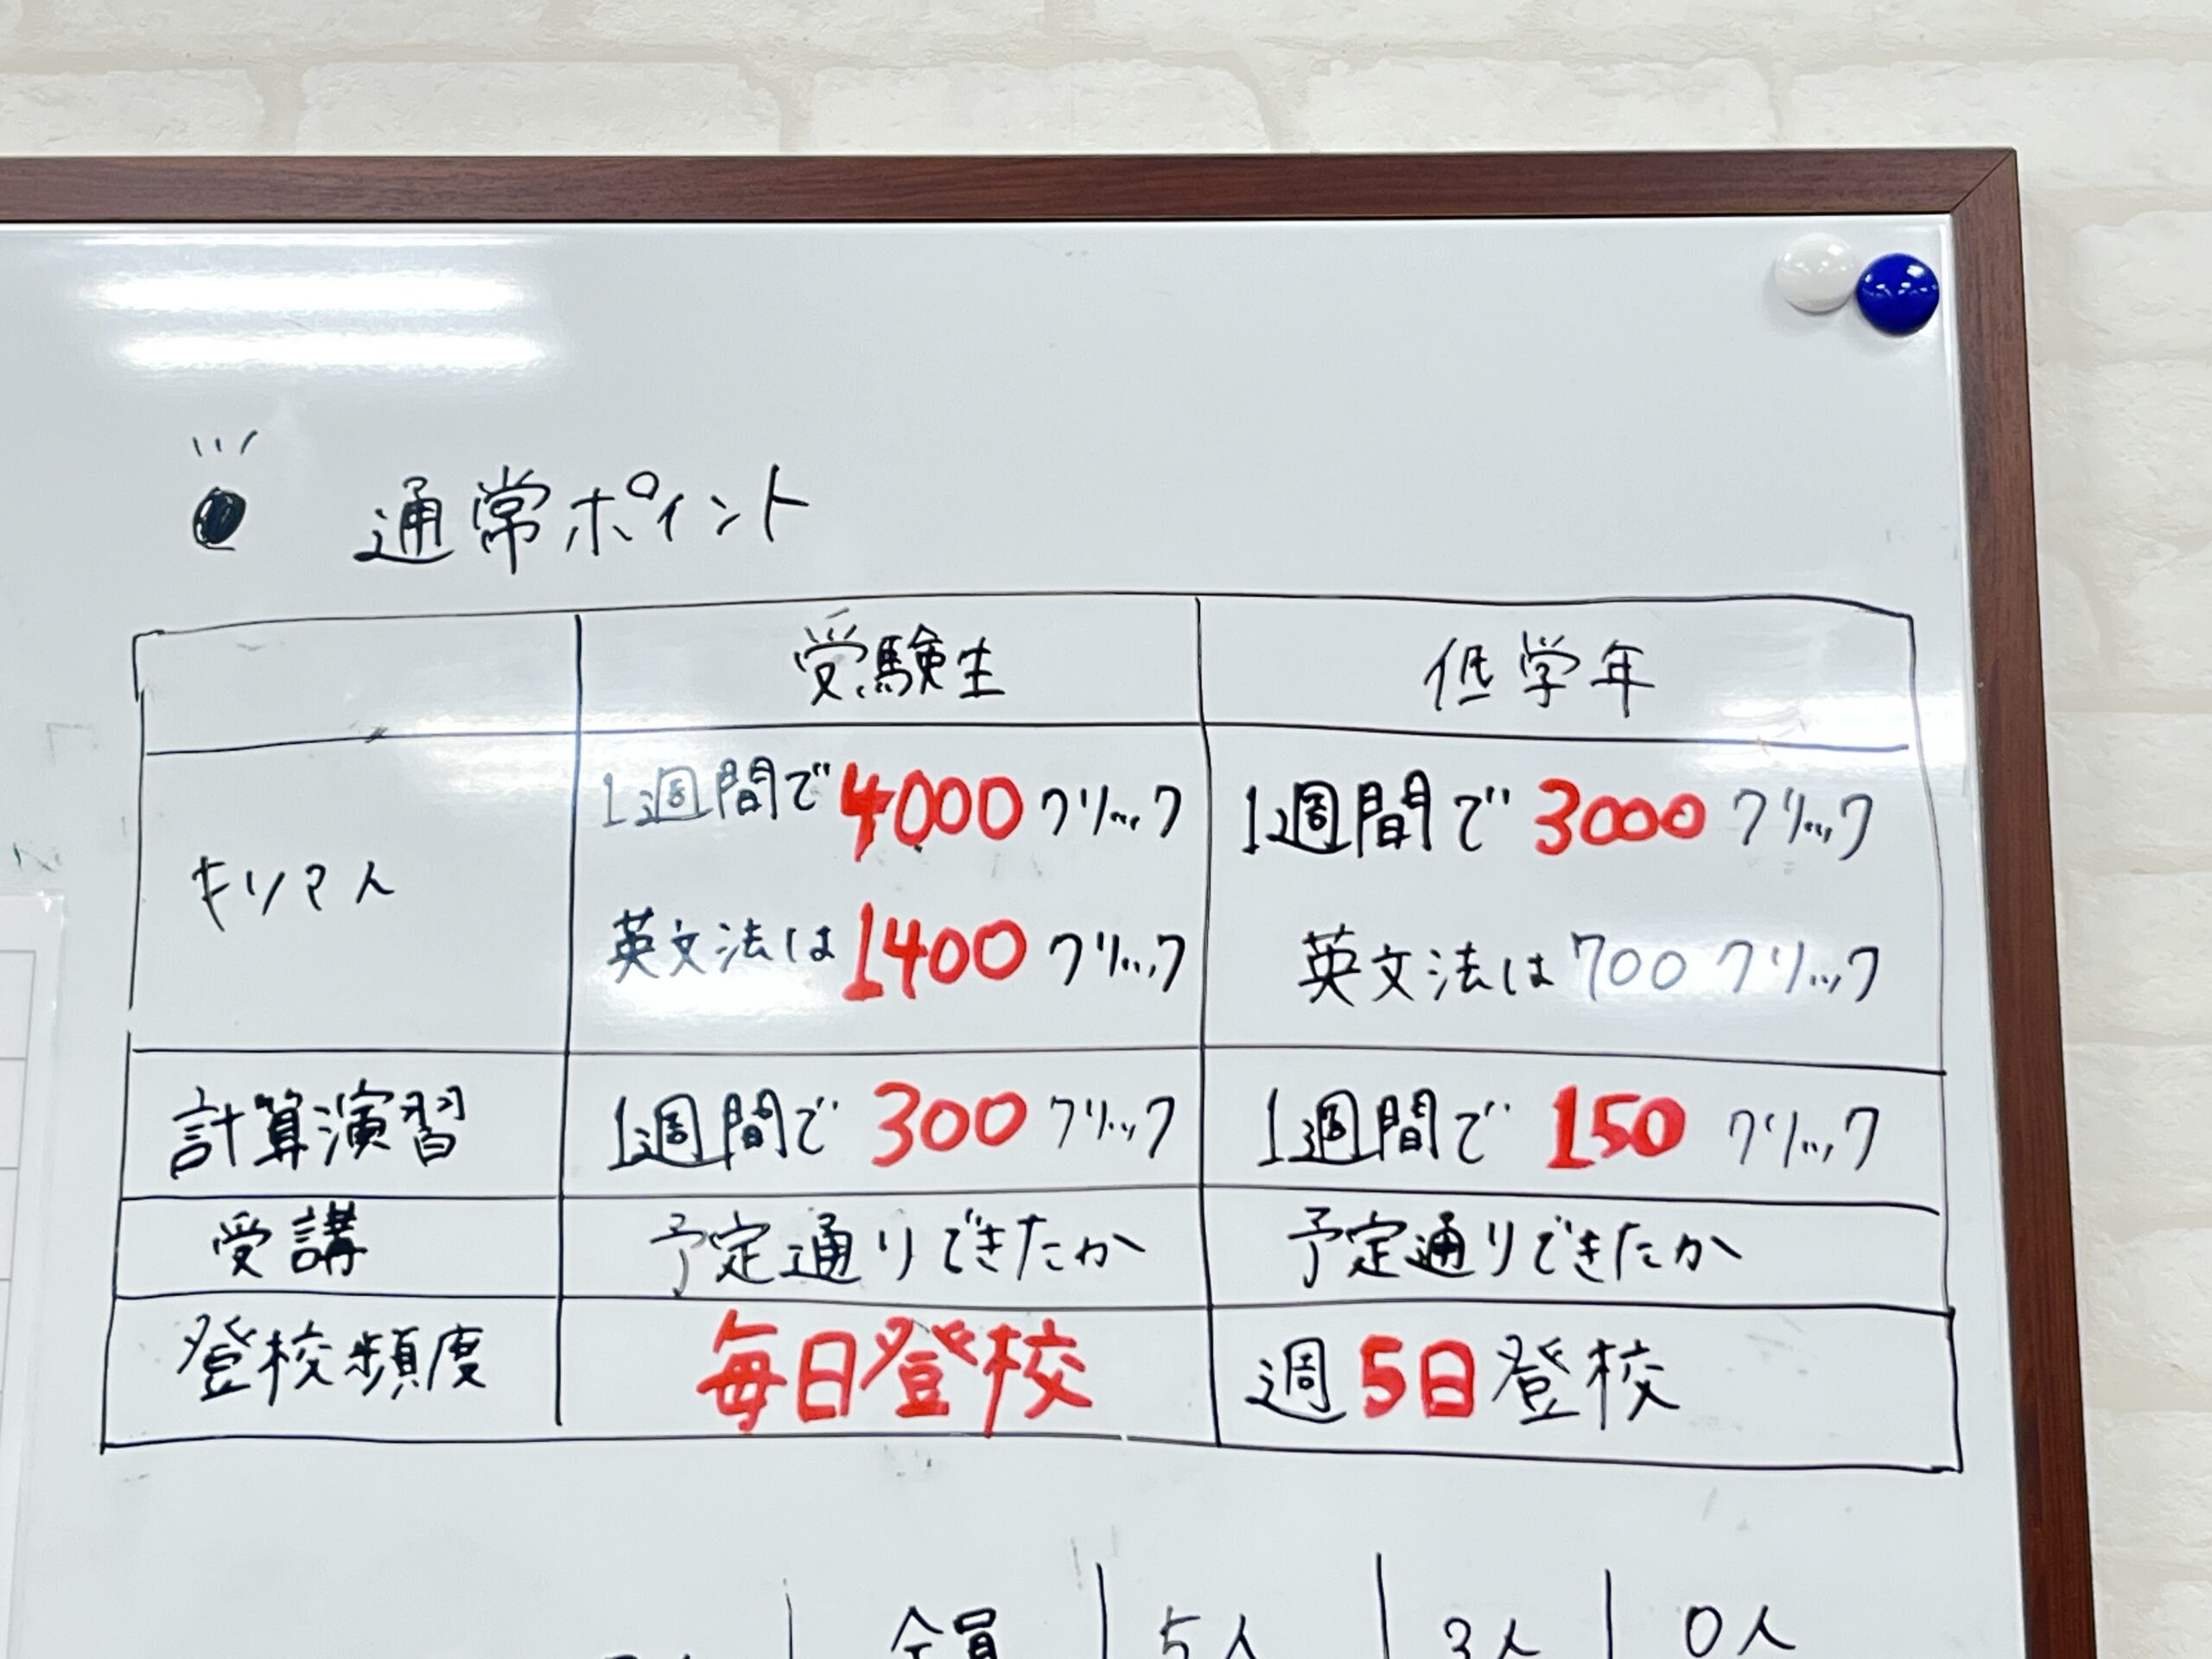 通常ポイント
受験生 低学年
キソマス
1週間で4000クリック 1週間で3000クリック
英文法は1400クリック 英文法は700クリック
計算演習 1週間で300クリック 1週間で150クリック
受講 予定通りできたか 予定通りできたか
登校頻度 毎日登校 週5日登校
全員 5人 3人 0人